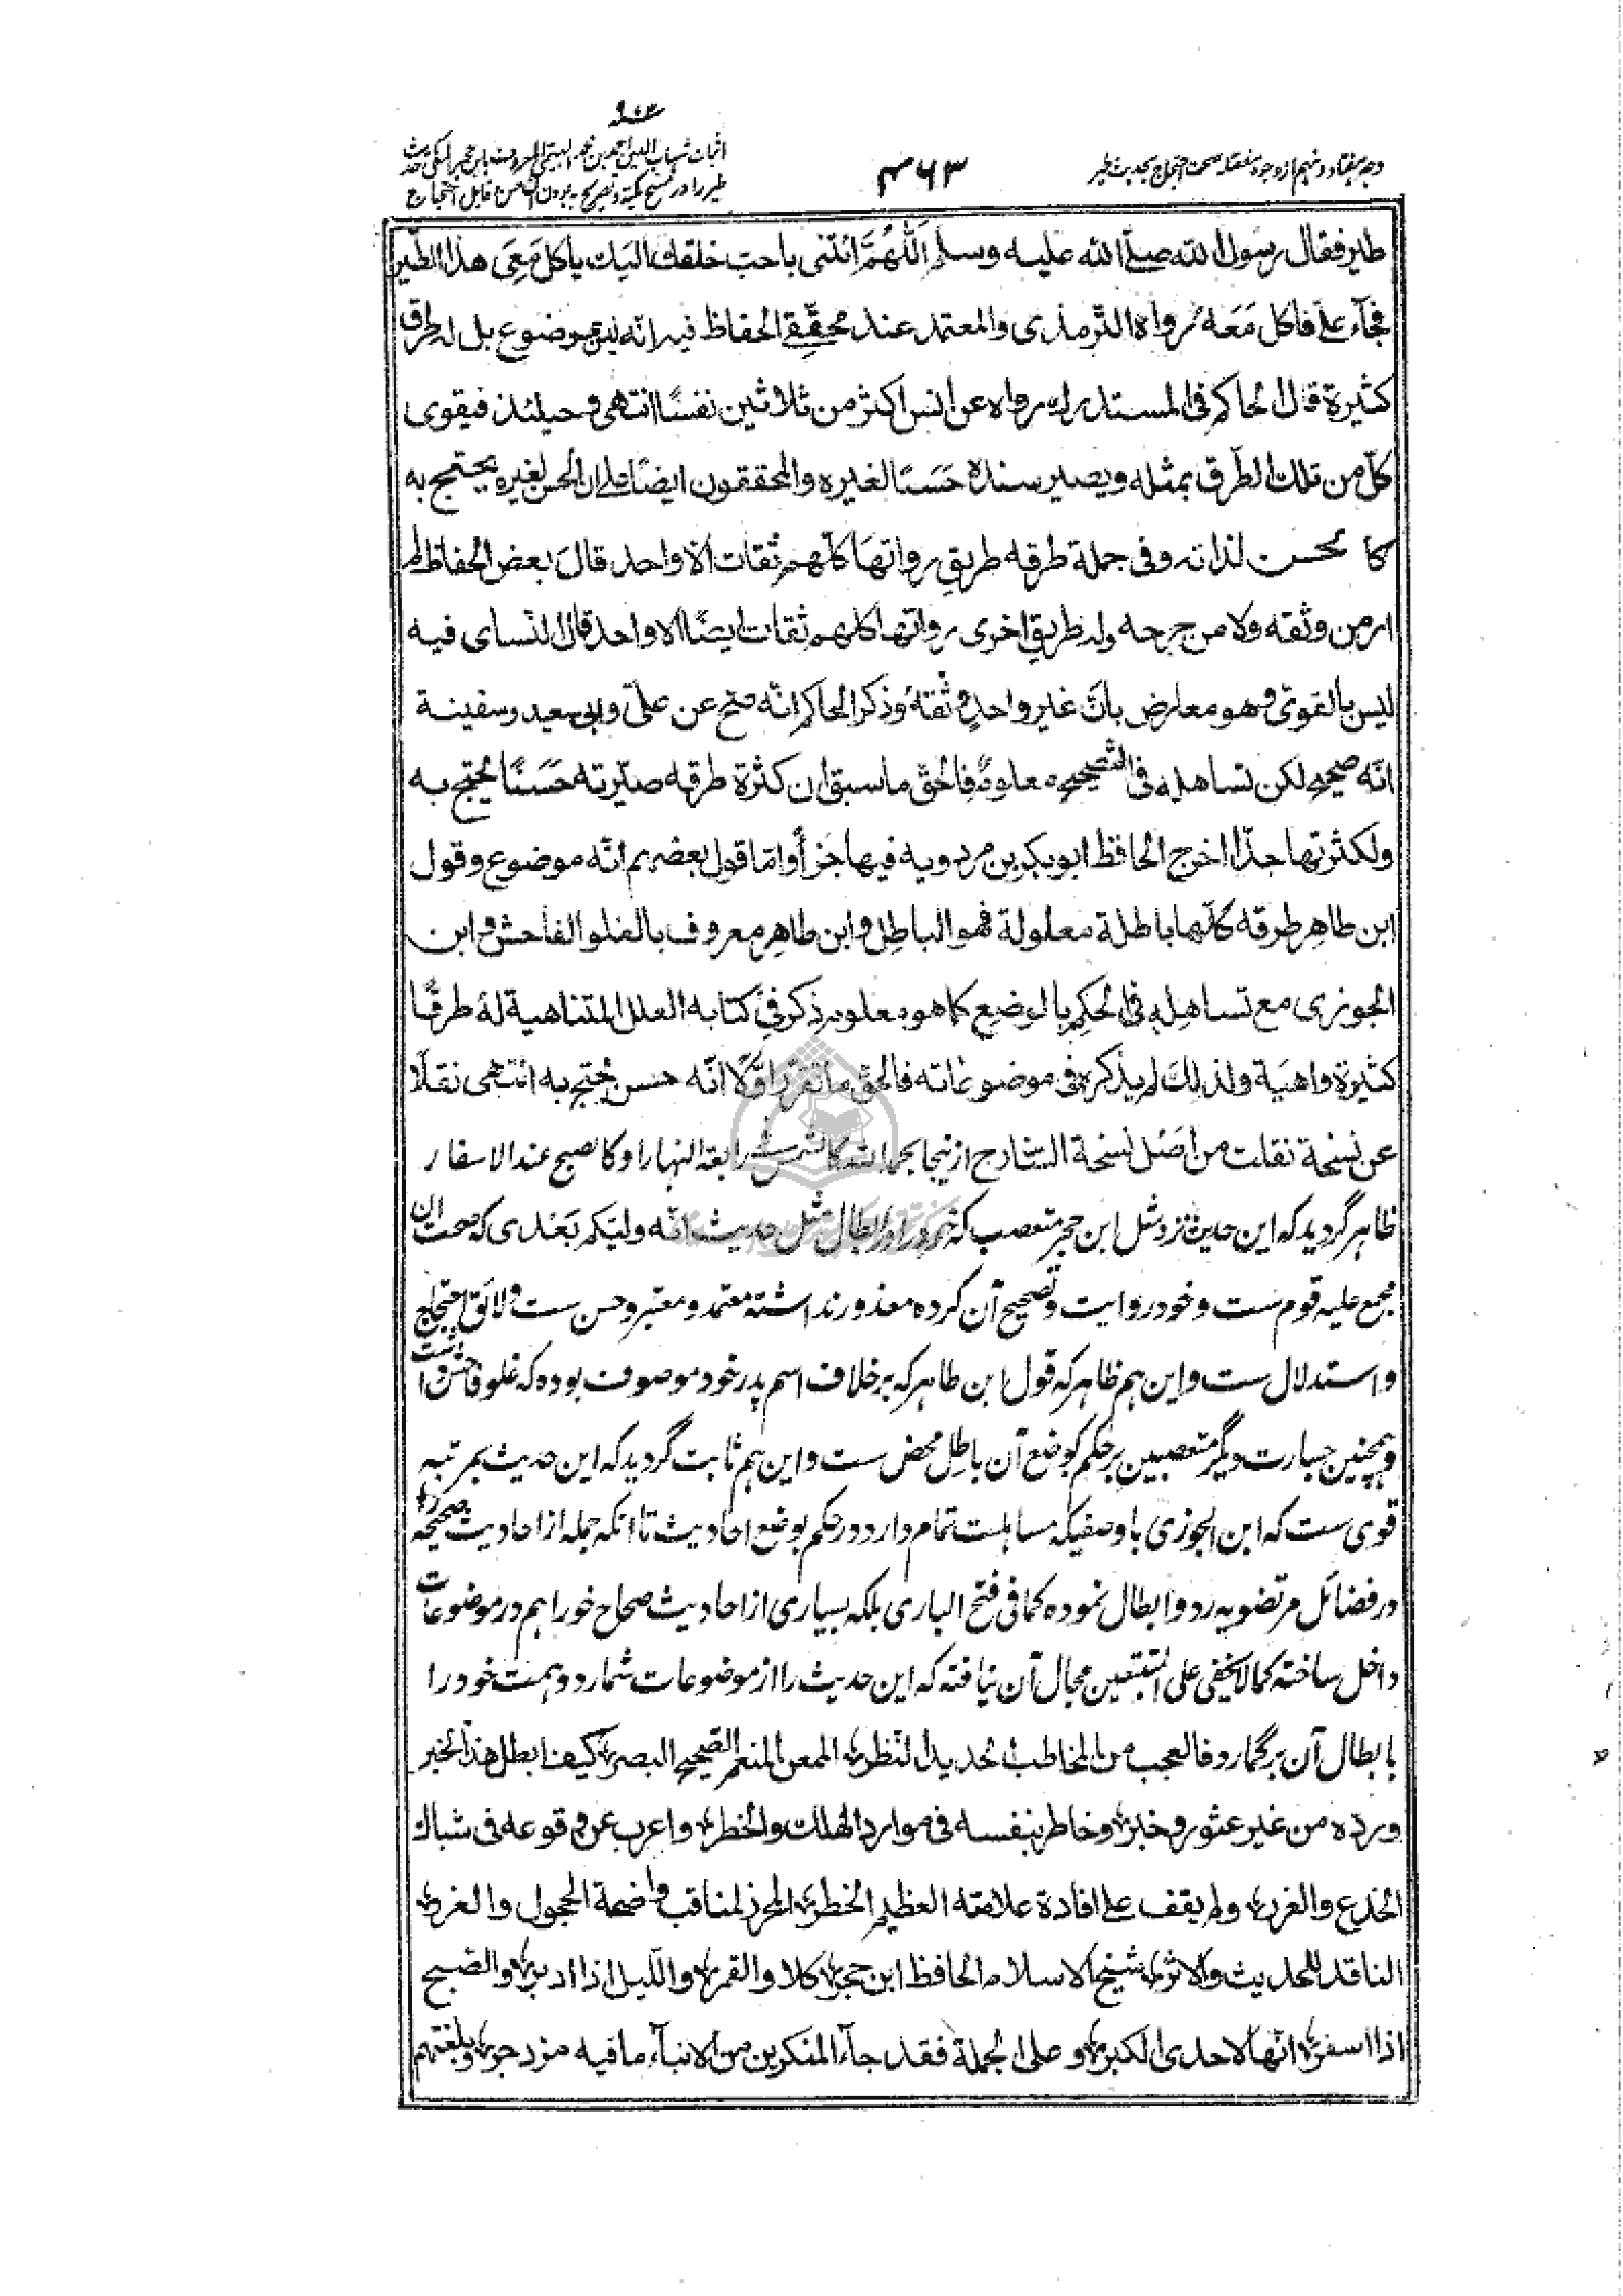 وجه هفتاد و نهم از وجوه مفصله صحت احتجاج بحديث طير
۴۶۳
اثبات شهاب الدين احمد بن حجر الهيتمي المعروف بابن حجر المكي حديث
طير را در منح مكية و تصريح به بودن آن حسن قابل احتجاج
طير فقال رسول الله صلى الله عليه وسلم اَللّٰهُمَّ ائتنى باحب خلقك اليك ياكل مَعِىَ هذا الطير
فجآء علىّ فاكل مَعَه رواه الترمذى والمعتمد عند محقّقى الحفاظ فيه انّه ليس بموضوع بل له طرق
كثيرة قال الحاكم فى المستدرك رواه عن انس اكثر من ثلاثين نفسًا انتهى وحينئذ فيقوى
كلّ من تلك الطّرق بمثله ويصير سنده حَسَنًا لغيره والمحققون ايضًا على ان الحسن لغيره يحتج به
كالحسن لذاته وفى جملة طرقه طريق رواتها كلّهم ثقات الّا واحد قال بعض الحفاظ لم
ار من وثقه ولا من جرحه وله طريق اخرى رواتها كلهم ثقات ايضًا الا واحد قال النّساى فيه
ليس بالقوىّ وهو معارض بانّ غير واحدٍ وثّقهُ وذكر الحاكم انّه صحّ عن علىّ وابى سعيد وسفينة
انّه صحيح لكن تساهله فى التصحيح معلومٌ فالحقّ ما سبق ان كثرة طرقه صيّرته حَسَنًا يحتج به
ولكثرتها جدّا اخرج الحافظ ابو بكر بن مردويه فيها جزأً وامّا قول بعضهم انّه موضوع وقول
ابن طاهر طرقه كلّها باطلة معلولة فهو الباطل وابن طاهر معروف بالغلو الفاحش وابن
الجوزى مع تساهله فى الحكم بالوضع كما هو معلوم ذكر فى كتابه العلل المتناهية لهٗ طرقًا
كثيرة واهية ولذلك لم يذكره فى موضوعاته فالحقّ ما تقرّر اوّلًا انّه حسن يحتج به انتهى نقلًا
عن نسخة نقلت من اصل نسخة الشارح ازينجا بحمد الله كالشمس فى رابعة النهار او كالصبح عند الاسفار
ظاهر گرديد كه اين حديث نزد مثل ابن حجر متعصب كه خود را در ابطال مثل حديث انّه وليّكم بَعْدى كه صحت آن
مجمع عليه قوم ست و خود روايت و تصحيح آن كرده معذور نداشته معتمد و معتبر و حسن ست و لائق احتجاج
و استدلال ست و اين هم ظاهر كه قول ابن طاهر كه برخلاف اسم پدر خود موصوف بوده كه غلو فاحش داشت
و همچنين جسارت ديگر متعصبين بر حكم بوضع آن باطل محض ست و اين هم ثابت گرديد كه اين حديث بمرتبه
قوى ست كه ابن الجوزى باوصفيكه مساهلت تمام دارد در حكم بوضع احاديث تا انكه جمله از احاديث صحيحه را
در فضائل مرتضويه رد و ابطال نموده كما فى فتح البارى بلكه بسيارى از احاديث صحاح خود را هم در موضوعات
داخل ساخته كما لا يخفى على المتتبعين مجال آن نيافته كه اين حديث را از موضوعات شمارد و همت خود را
بابطال آن برگمارد فالعجب من المخاطب الحديد النّظر الممعن المنعم الصّحيح البصر كيف ابطل هذا الخبر
وردّه من غير عثور وخبر وخاطر بنفسه فى موارد الهلك والخطر واعرب عن وقوعه فى شباك
الخدع والغرر ولم يقف على افادة علامته العظيم الخطر المحرز لمناقب واضحة الحجول والغرر
الناقد للحديث والاثر شيخ الاسلام الحافظ ابن حجر كلا والقمر والّيل اذا ادبر والصّبح
اذا اسفر انّها لاحدى الكبر و على الجملة فقد جآء المنكرين من الانبآء ما فيه مزدجر و بلغتهم